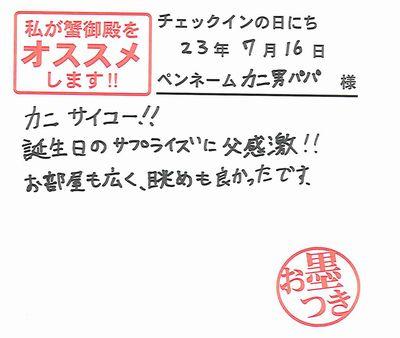 私が蟹御殿を
オススメ
します!!
チェックインの日にち
23年 7月 16日
ペンネーム カニ男パパ 様
カニ サイコー!!
誕生日の サプライズに 父感激!!
お部屋も広く、眺めも良かったです。
お墨つき